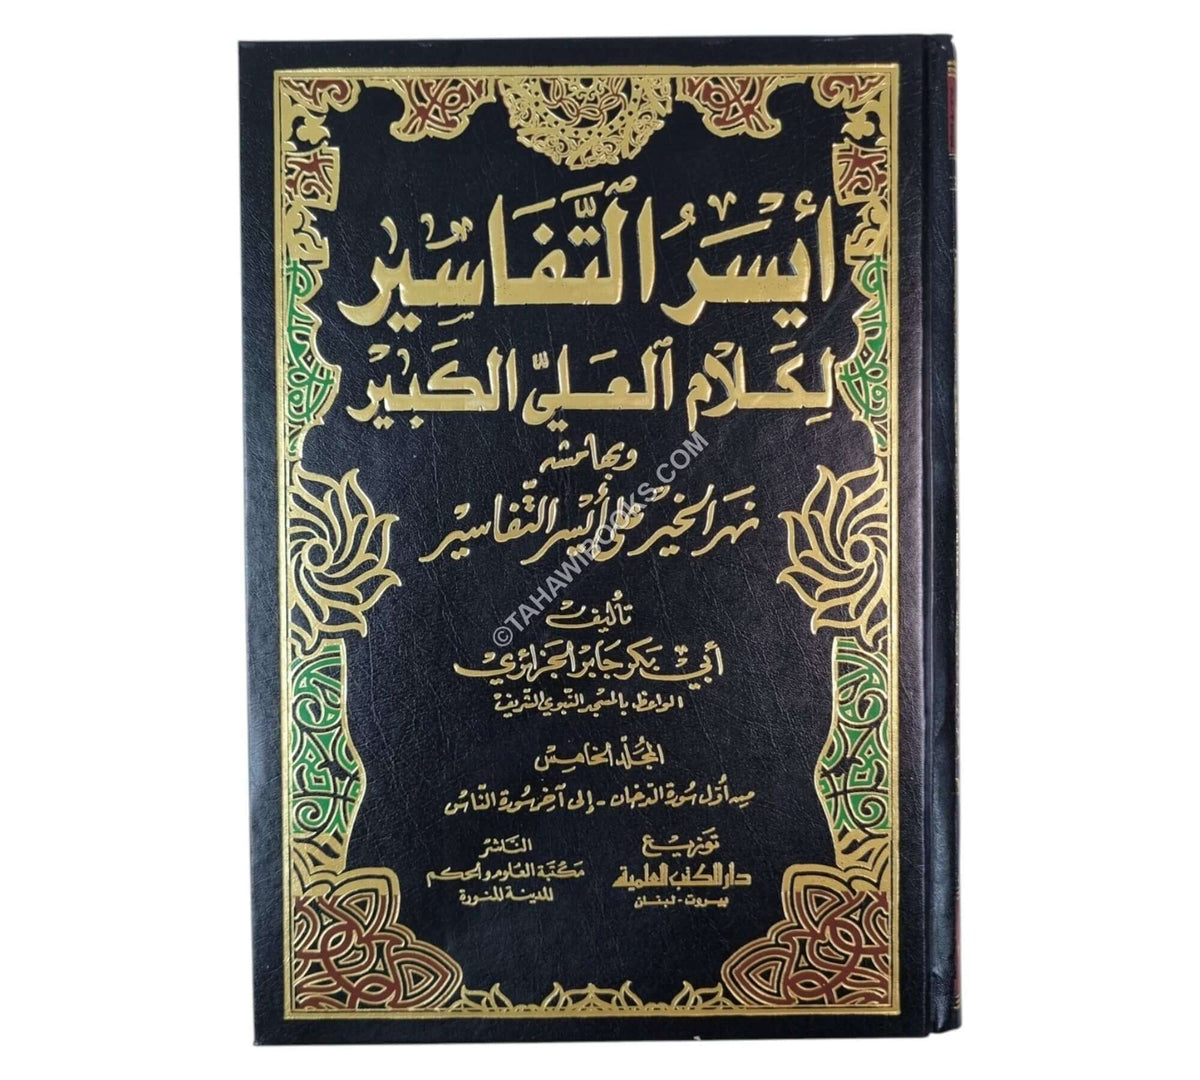 أيسر التفاسير
لكلام العلي الكبير
وبهامشه
نهر الخير على أيسر التفاسير
تأليف
أبي بكر جابر الجزائري
الواعظ بالمسجد النبوي الشريف
المجلد الخامس
من أول سورة الدخان - إلى آخر سورة الناس
توزيع
دار الكتب العلمية
بيروت - لبنان
الناشر
مكتبة العلوم والحكم
المدينة المنورة
©TAHAWIBOOKS.COM